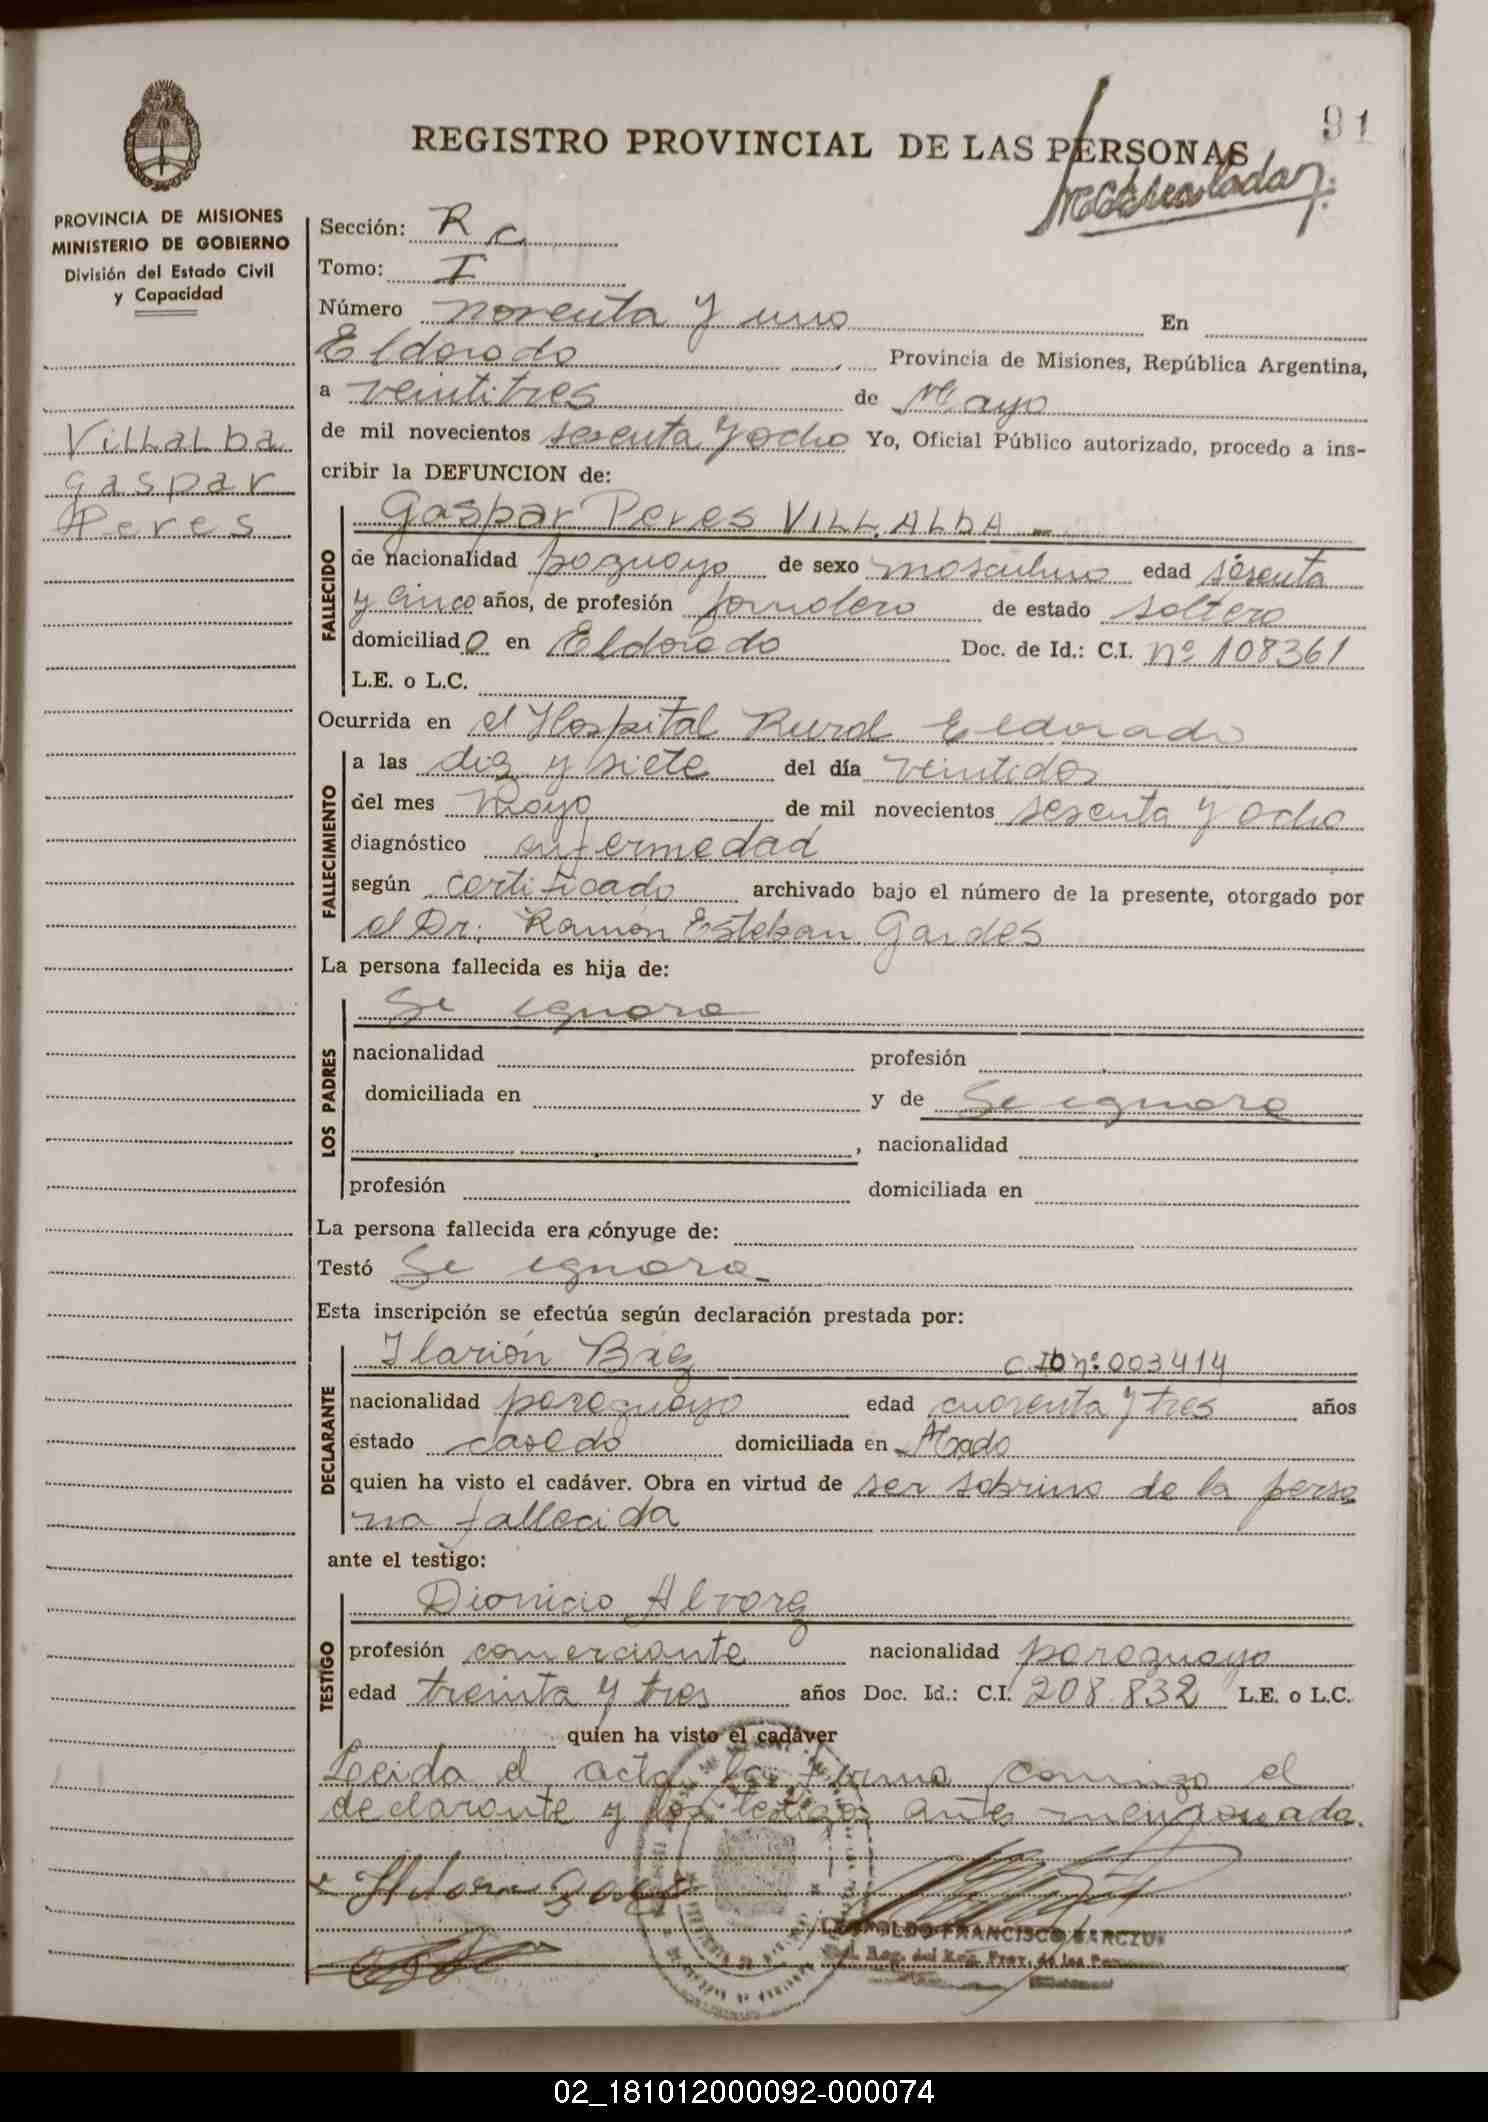 91
REGISTRO PROVINCIAL DE LAS PERSONAS
PROVINCIA DE MISIONES
MINISTERIO DE GOBIERNO
División del Estado Civil
y Capacidad
Villalba
Gaspar
Peres
Sección: R c
Tomo: I
Número noventa y uno En
Eldorado Provincia de Misiones, República Argentina,
a veintitres de Mayo
de mil novecientos sesenta y ocho Yo, Oficial Público autorizado, procedo a ins-
cribir la DEFUNCION de:
FALLECIDO
Gaspar Peres VILLALBA
de nacionalidad paraguayo de sexo masculino edad sesenta
y cinco años, de profesión jornalero de estado soltero
domiciliado en Eldorado Doc. de Id.: C.I. nº 108361
L.E. o L.C.
Ocurrida en el Hospital Rural Eldorado
FALLECIMIENTO
a las diez y siete del día veintidos
del mes Mayo de mil novecientos sesenta y ocho
diagnóstico enfermedad
según certificado archivado bajo el número de la presente, otorgado por
el Dr. Ramón Esteban Gardes
La persona fallecida es hija de:
LOS PADRES
Se ignora
nacionalidad profesión
domiciliada en y de Se ignora
, nacionalidad
profesión domiciliada en
La persona fallecida era cónyuge de:
Testó Se ignora
Esta inscripción se efectúa según declaración prestada por:
DECLARANTE
Ilarión Báez nº 003414
nacionalidad paraguayo edad cuarenta y tres años
estado casado domiciliada en
quien ha visto el cadáver. Obra en virtud de ser sobrino de la perso
na fallecida
ante el testigo:
TESTIGO
Dionicio Alvarez
profesión comerciante nacionalidad paraguayo
edad treinta y tres años Doc. Id.: C.I. 208.832 L.E. o L.C.
quien ha visto el cadáver
Leida el acta la firma conmigo el
declarante y los testigos antes mencionado.
FRANCISCO
Reg. del Reg. Prov. de las
02_181012000092-000074